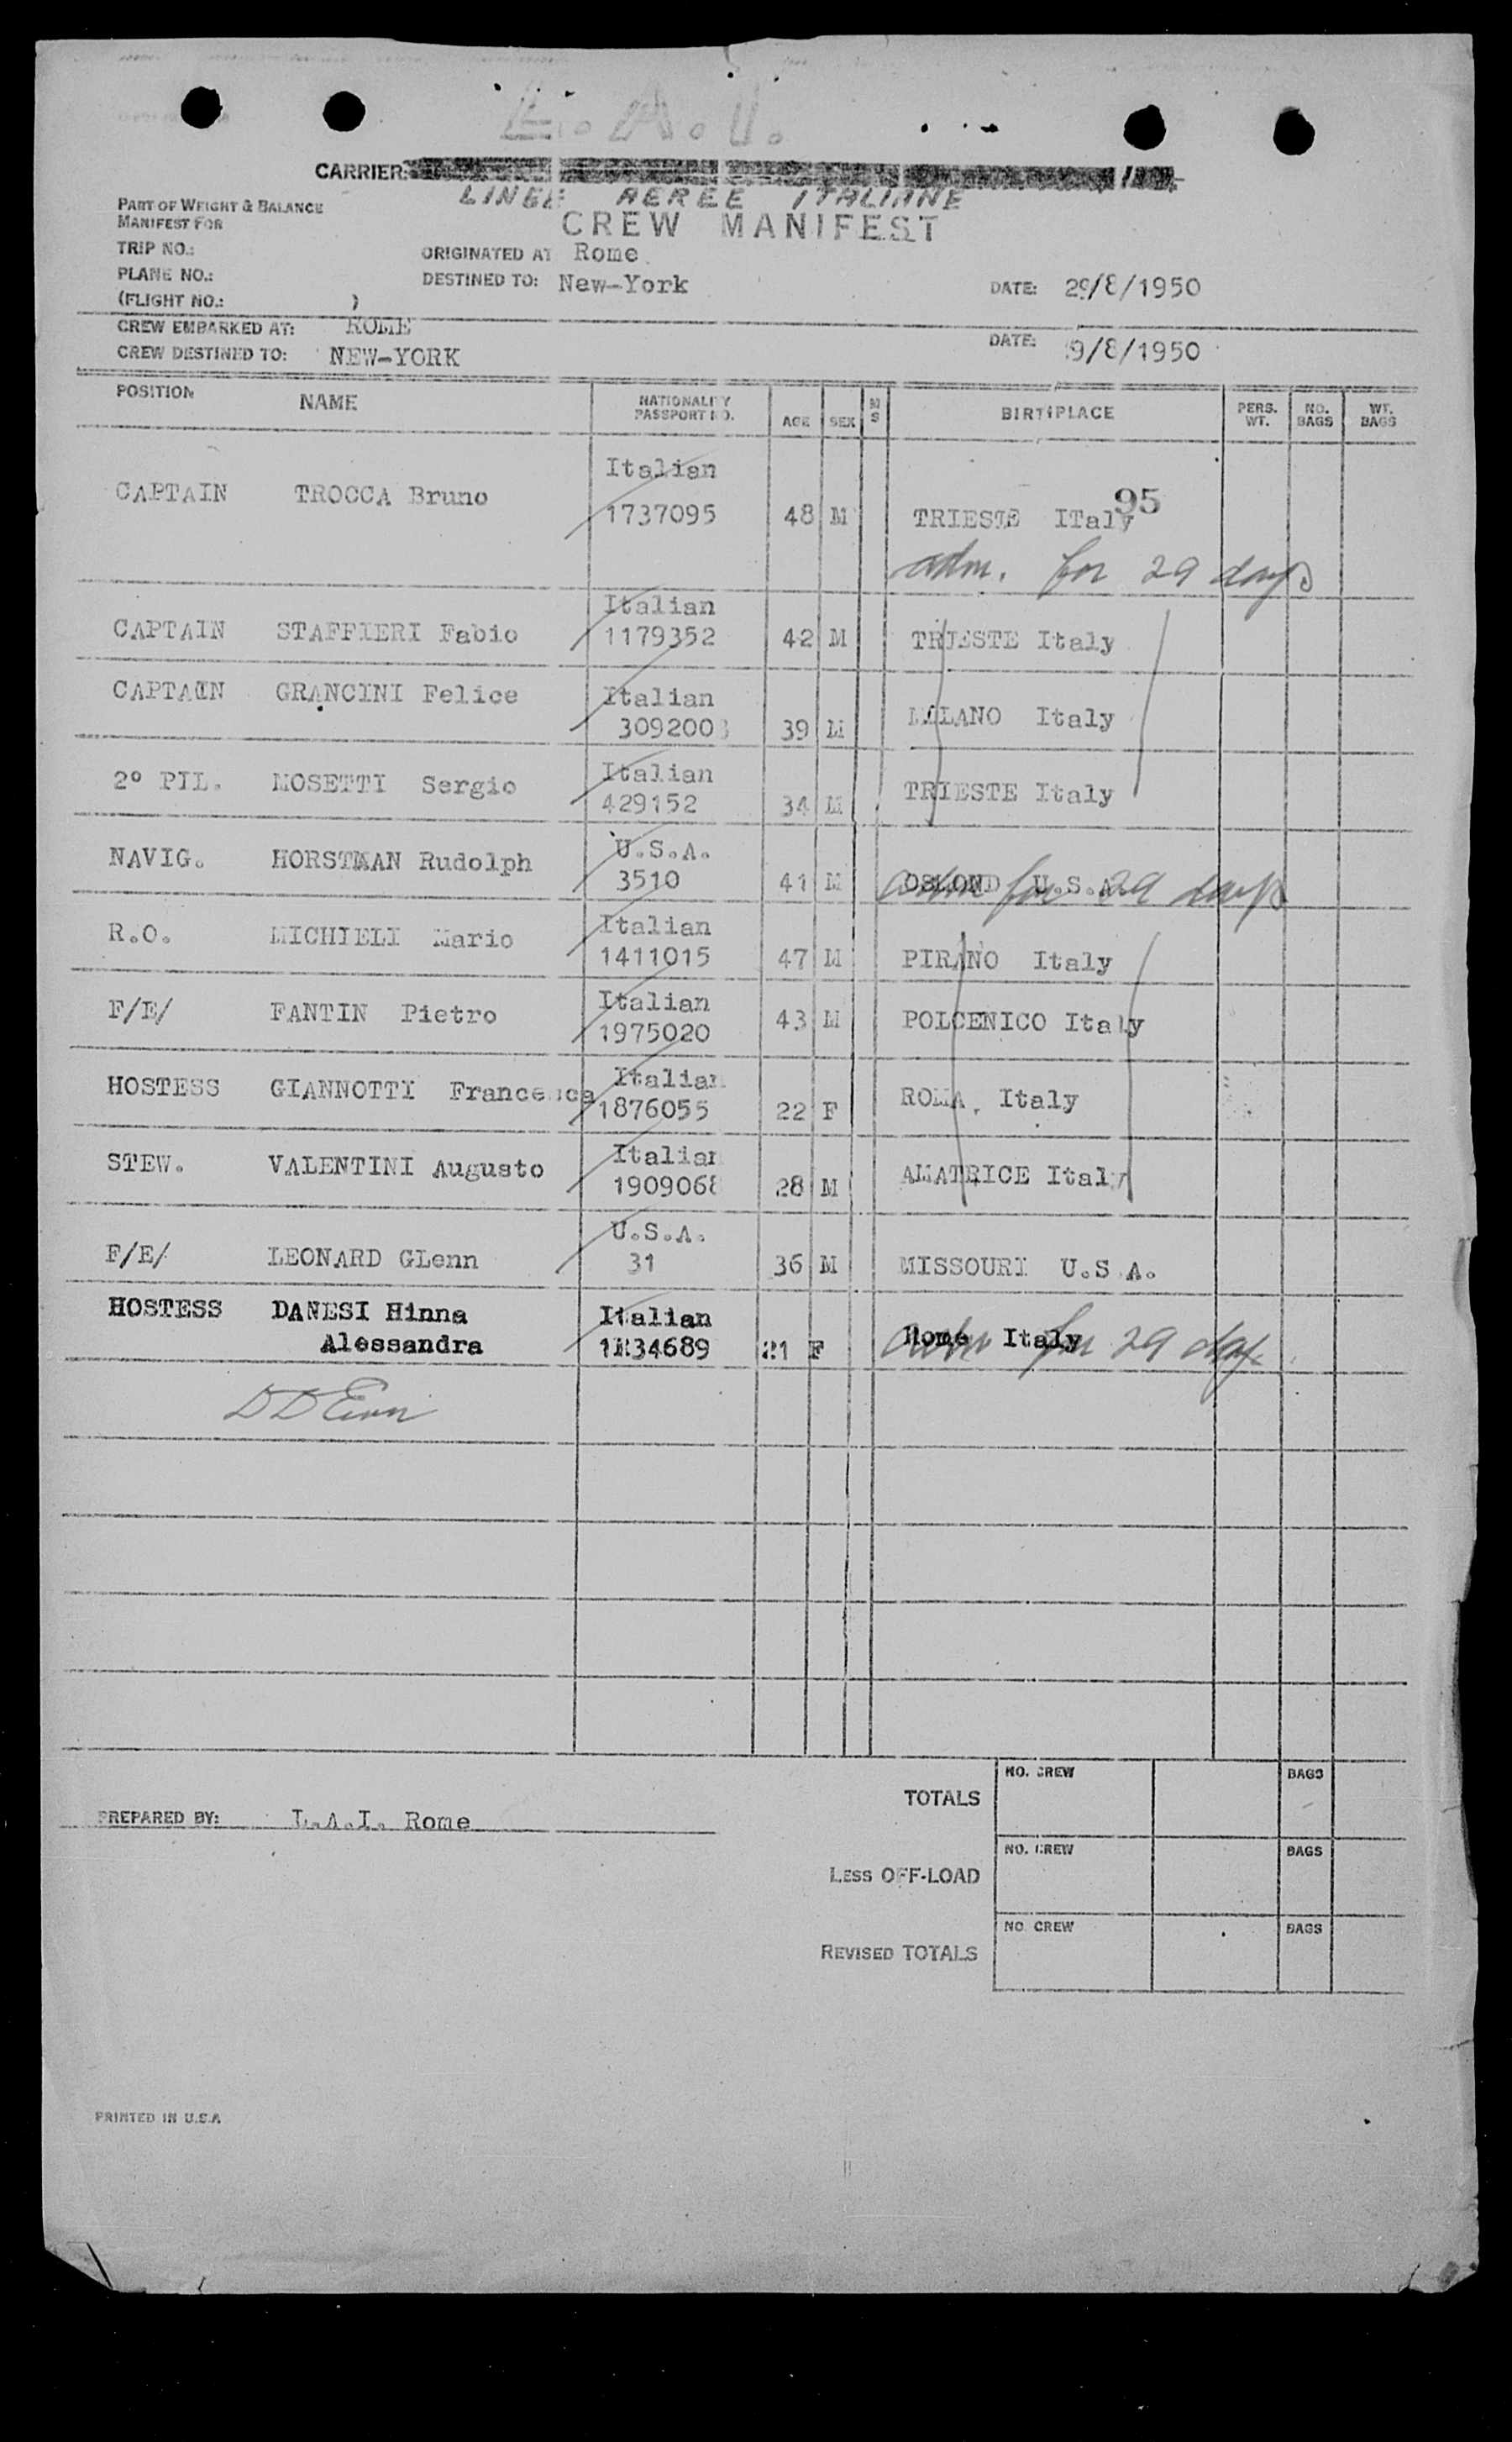 L.A.I.
CARRIER:
LINEE AEREE ITALIANE
PART OF WEIGHT & BALANCE
MANIFEST FOR
CREW MANIFEST
TRIP NO.: ORIGINATED AT Rome
PLANE NO.: DESTINED TO: New-York DATE: 29/8/1950
(FLIGHT NO.: )
CREW EMBARKED AT: ROME
CREW DESTINED TO: NEW-YORK DATE: 9/8/1950
POSITION NAME NATIONALITY PASSPORT NO. AGE SEX M S BIRTHPLACE PERS. WT. NO. BAGS WT. BAGS
Italian
CAPTAIN TROCCA Bruno 1737095 48 M TRIESTE ITaly 95
adm. for 29 days
Italian
CAPTAIN STAFFIERI Fabio 1179352 42 M TRIESTE Italy
CAPTAIN GRANCINI Felice Italian
3092003 39 M MILANO Italy
2º PIL. MOSETTI Sergio Italian
429152 34 M TRIESTE Italy
NAVIG. HORSTMAN Rudolph U.S.A.
3510 41 M U.S.A.
adm for 29 days
R.O. MICHIELI Mario Italian
1411015 47 M PIRANO Italy
F/E/ FANTIN Pietro Italian
1975020 43 M POLCENICO Italy
HOSTESS GIANNOTTI Francesca Italian
1876055 22 F ROMA, Italy
STEW. VALENTINI Augusto Italian
1909068 28 M AMATRICE Italy
U.S.A.
F/E/ LEONARD GLenn 31 36 M MISSOURI U.S.A.
HOSTESS DANESI Hinna Italian
Alessandra 1234689 21 F Rome Italy
adm for 29 days
PREPARED BY: L.A.I. Rome
TOTALS NO. CREW BAGS
LESS OFF-LOAD NO. CREW BAGS
REVISED TOTALS NO. CREW BAGS
PRINTED IN U.S.A